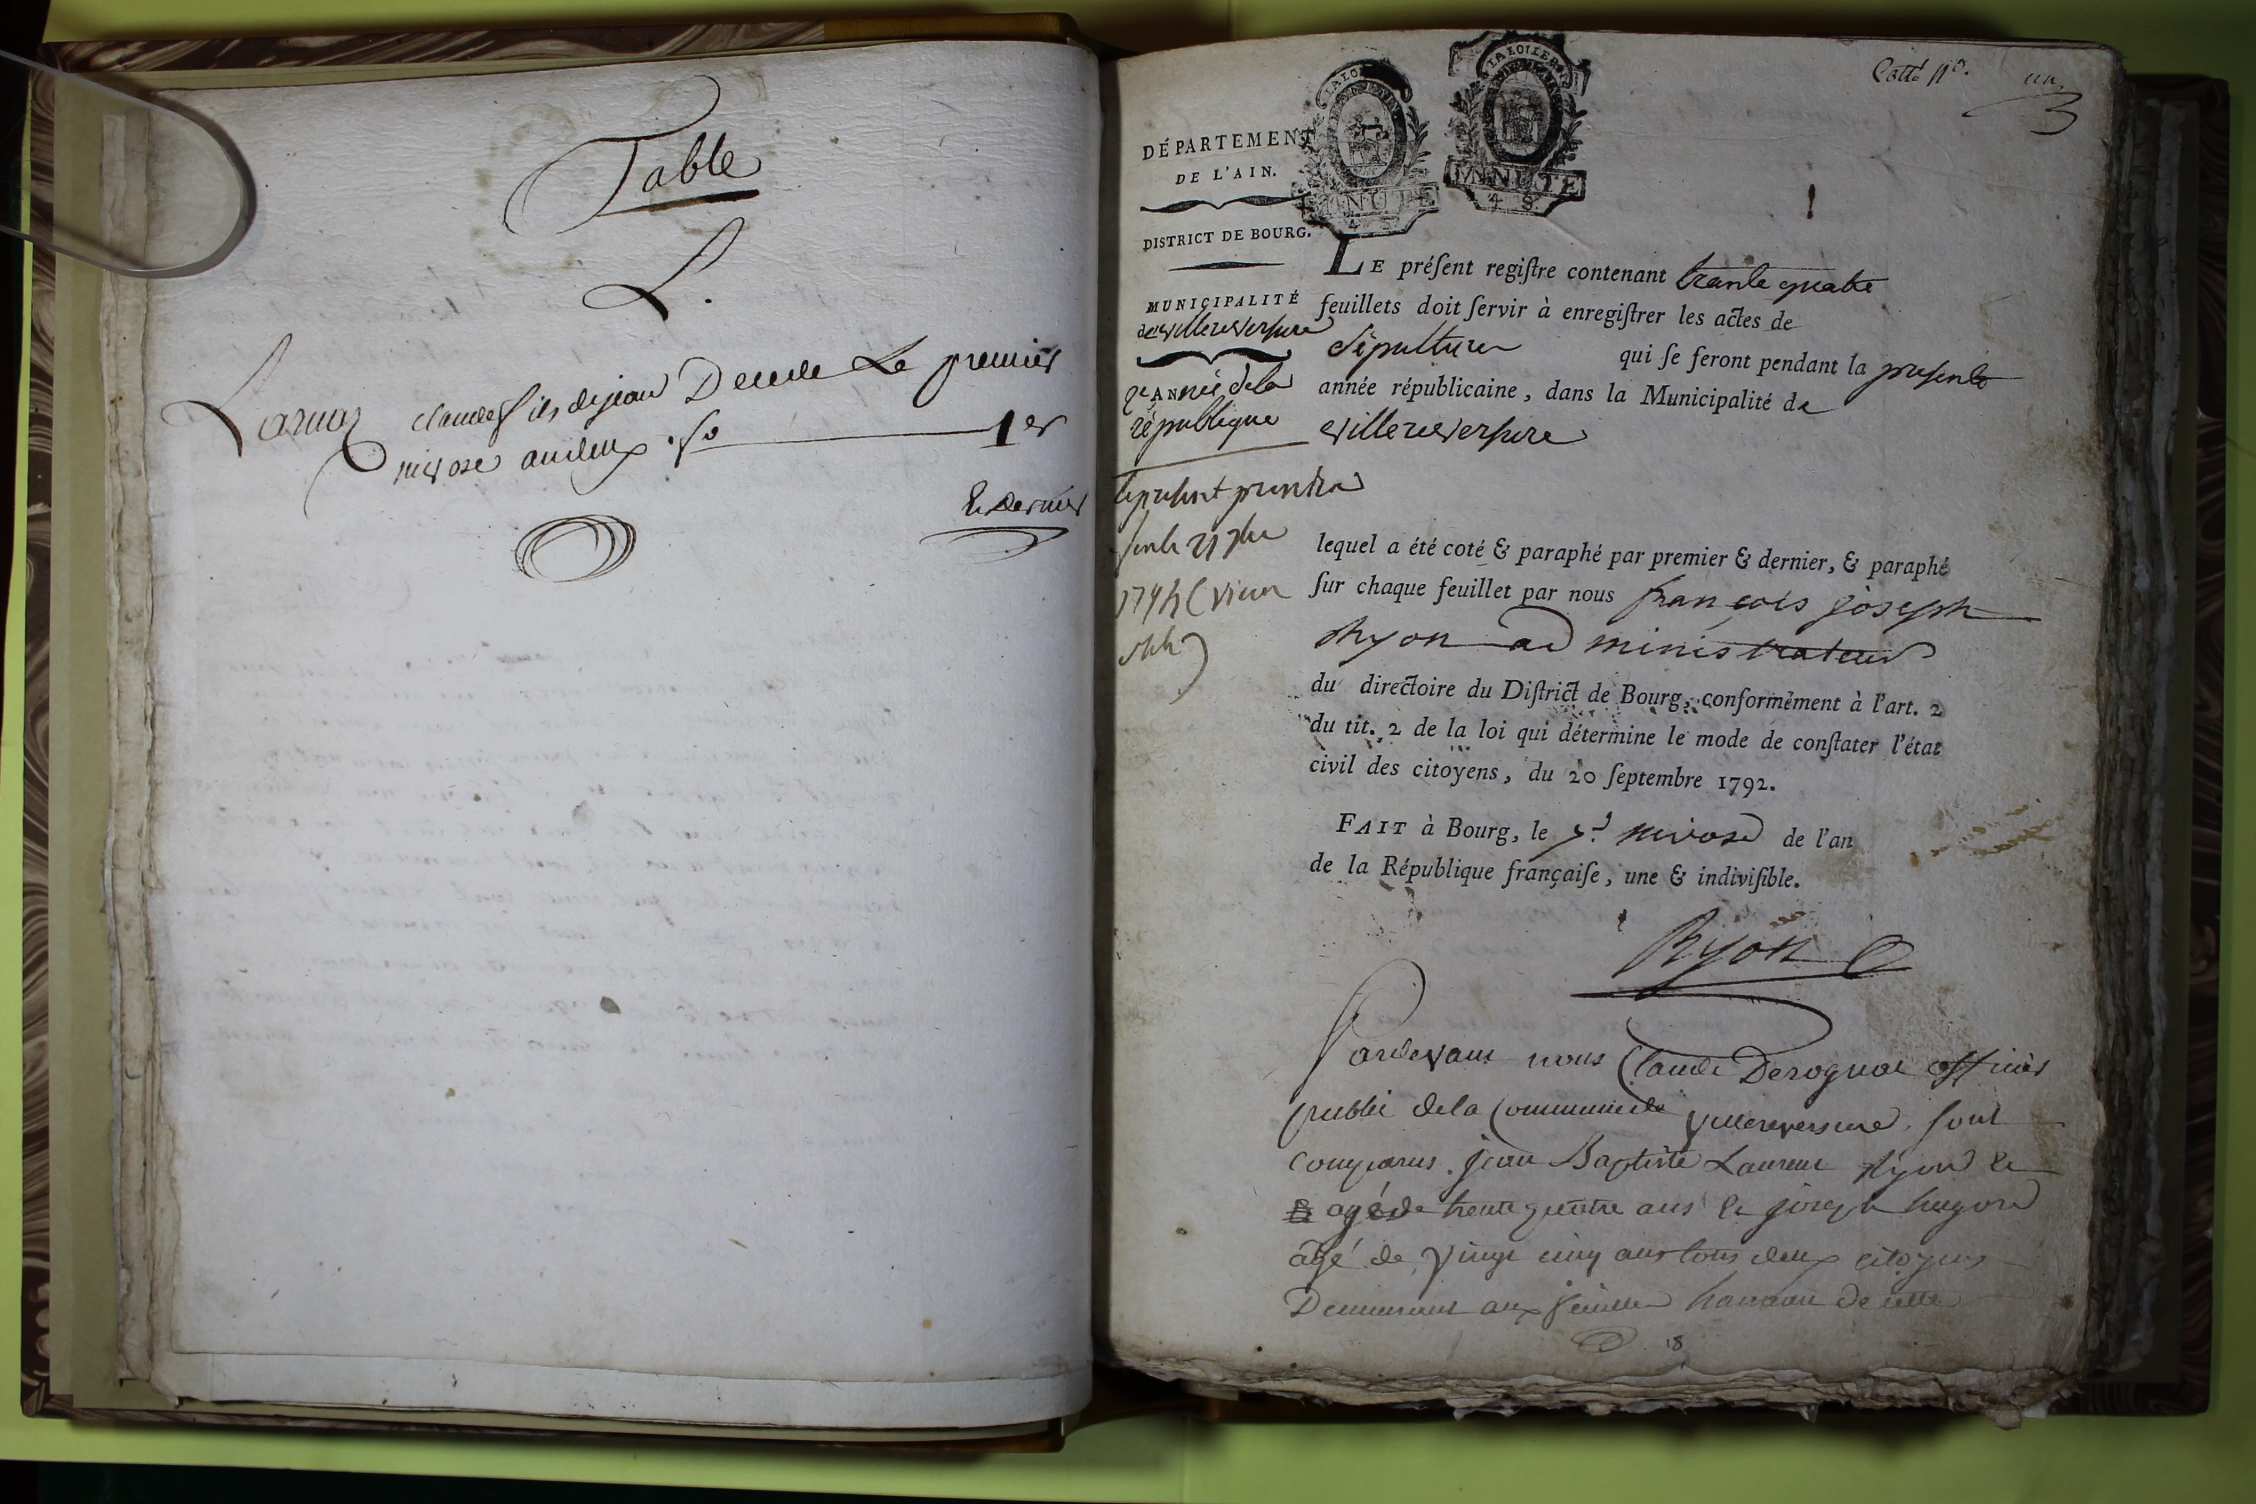 Table
L.
Larnaz claude fils de jean Decede Le premier
nivose an deux . fo 1er
Et Dernier
Cotté no. un
LA LOI
LA LOI LE R
MINUTE
4 S.
MINUTE
4 S.
DÉPARTEMENT
DE L'AIN.
DISTRICT DE BOURG.
MUNICIPALITÉ
de villereversure
2e ANnée de la
république
LE préſent regiſtre contenant trante quatre
feuillets doit ſervir à enregiſtrer les actes de
Sépulture qui ſe feront pendant la presente
année républicaine, dans la Municipalité de
villereversure
lequel a été coté & paraphé par premier & dernier, & paraphé
ſur chaque feuillet par nous françois joseph
Ryon administrateur
du directoire du Diſtrict de Bourg, conformément à l'art. 2
du tit. 2 de la loi qui détermine le mode de conſtater l'état
civil des citoyens, du 20 ſeptembre 1792.
FAIT à Bourg, le nivose de l'an
de la République françaiſe, une & indiviſible.
Ryon
Pardevant nous Claude Derognat officier
public de la Commune de villereversure sont
comparus jean Baptiste Laurent &
agé de trente quatre ans & joseph hugon
âgé de vingt cinq ans tous deux citoyens
Demeurant aux hameau de cette
18